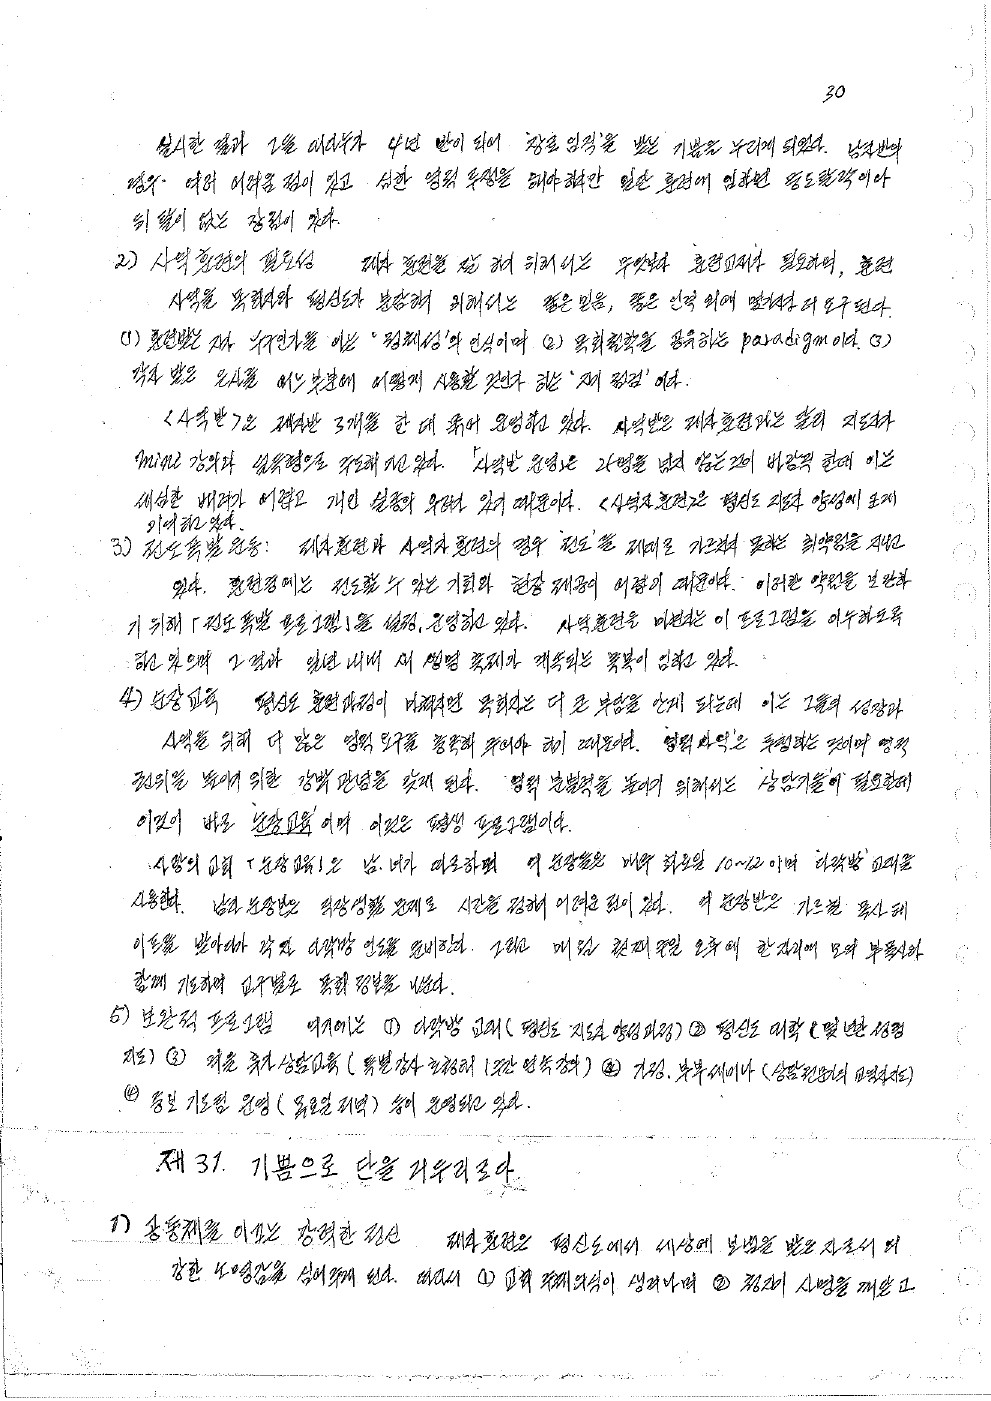 30
실시한 결과 그들 대다수가 4년 반이 되어 '장로 임직'을 받는 기쁨을 누리게 되었다. 남자반의
경우 여러 어려운 점이 있고 심한 영적 투쟁을 해야 하지만 일단 훈련에 임하면 중도탈락이나
뒤탈이 없는 장점이 있다.
2) 사역훈련의 필요성 제자훈련을 잘 하기 위해서는 무엇보다 훈련교재가 필요하며, 훈련
사역을 목회자와 평신도가 분담하기 위해서는 좋은 믿음, 좋은 인격 위에 몇가지가 더 요구된다.
(1) 훈련받는 자가 누구인가를 아는 '정체성'의 인식이며 (2) 목회철학을 공유하는 paradigm이다. (3)
각자 받은 은사를 어느 부분에 어떻게 사용할 것인가 하는 '자기 점검'이다.
<사역반>은 제자반 3개를 한데 묶어 운영하고 있다. 사역반은 제자훈련과는 달리 지도자가
mini 강의와 설득형으로 주도해 가고 있다. 「사역반 운영」은 25명을 넘지 않는 것이 바람직한데 이는
세심한 배려가 어렵고 개인 실종의 우려가 있기 때문이다. <사역자훈련>은 평신도 지도자 양성에 크게
기여하고 있다.
3) 전도폭발운동: 제자훈련과 사역자훈련의 경우 '전도'를 제대로 가르치지 못하는 취약점을 지니고
있다. 훈련중에는 전도할 수 있는 기회와 현장 제공이 어렵기 때문이다. 이러한 약점을 보완하
기 위해 「전도폭발 프로그램」을 설정, 운영하고 있다. 사역훈련을 마친자는 이 프로그램을 이수하도록
하고 있으며 그 결과 일년 내내 새 생명 축제가 계속되는 축복이 임하고 있다.
4) 순장교육 평신도 훈련과정이 마쳐지면 목회자는 더 큰 부담을 안게 되는데 이는 그들의 성장과
사역을 위해 더 많은 영적 요구를 충족해 주어야 하기 때문이다. '영적 사역'은 투쟁하는 것이며 영적
권위를 높이기 위한 강박관념을 갖게 된다. 영적 분별력을 높이기 위해서는 '상담기술'이 필요한데
이것이 바로 '순장교육'이며 이것은 평생 프로그램이다.
사랑의 교회 「순장교육」은 남.녀가 따로하며 여 순장들은 매주 화요일 10~12이며 '다락방' 교재를
사용한다. 남자 순장반은 직장생활 문제로 시간을 정하기 어려운 점이 있다. 여 순장반은 가르친 목사의
인도를 받아다가 각자 다락방 인도를 준비한다. 그리고 매월 첫째주일 오후에 한자리에 모여 부목사와
함께 기도하며 교구별로 목회 정보를 나눈다.
5) 보완적 프로그램 여기에는 ① 다락방 교재(평신도 지도자 양성과정) ② 평신도 대학(몇년간 성경
지도) ③ 겨울 특강 상담교육(특별강사 초청해 1주간 연속강의) ④ 가정, 부부세미나(상담전문가의 교역자지도)
④ 중보기도팀 운영(목요일 저녁) 등이 운영되고 있다.
제 31. 기쁨으로 단을 거두리로다
1) 공동체를 이끄는 강력한 정신 제자훈련은 평신도에서 세상에 보냄을 받은 자로서의
강한 소명감을 심어주게 된다. 따라서 ① 교회 주체의식이 생겨나며 ② 점차 사명을 깨닫고